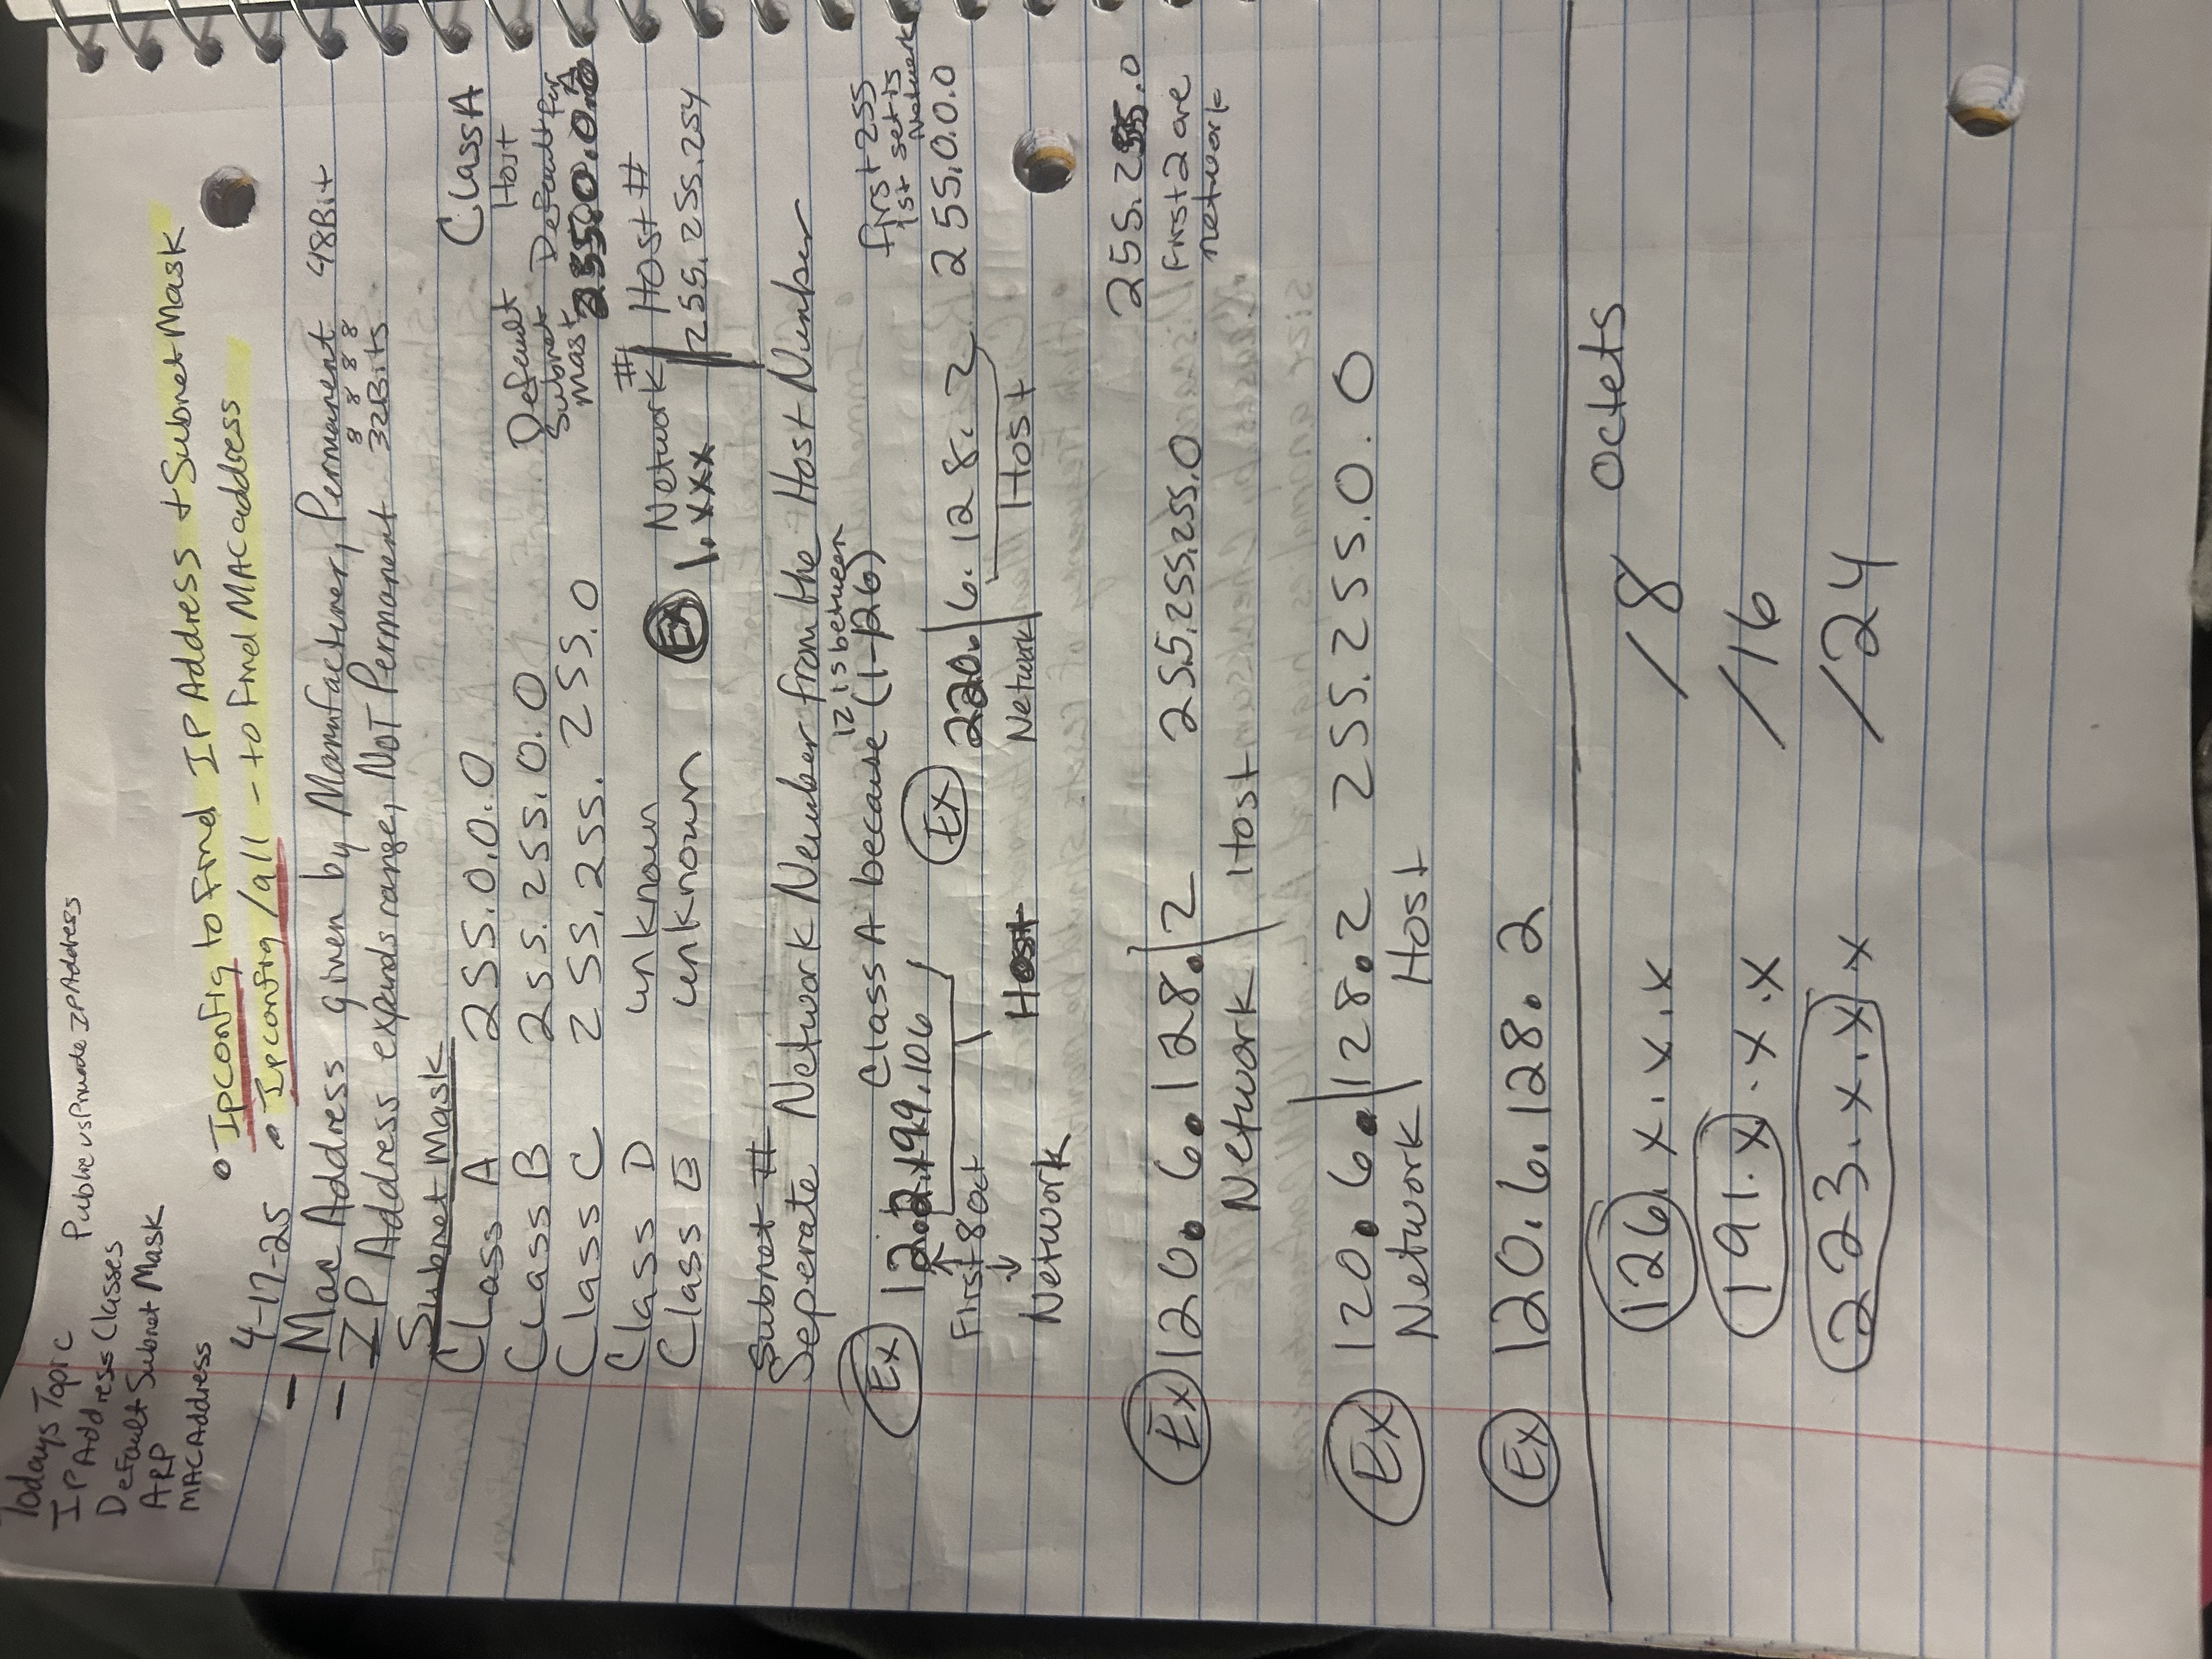 Todays Topic
IP Address Classes
Public vs Private IP Address
Default Subnet Mask
ARP
MAC Address
• Ipconfig to find IP Address + Subnet Mask
4-17-25 • Ipconfig /all - to find MAC address
- Mac Address given by Manufacturer, Permanent 48Bit
8 8 8 8
- IP Address expands range, NOT Permanent 32Bits
Subnet Mask
Class A 255.0.0.0
Class B 255.255.0.0
Class C 255.255.255.0
Class D unknown
Class E unknown
Class A
Host
Default Subnet Mask
Default for A
255.0.0.0
Ex Network # | Host #
1.xxx | 255.255.254
Subnet #
Seperate Network Number from the Host Number
12 is between
Class A because (1-126)
Ex 12.2.199.106
First 8 Oct
Network
Host
Ex 220.|6.128.2 255.0.0.0
Network | Host
first 255
1st set is
Network
Ex 120.6.128.|2 255.255.255.0
Network | Host
255.255.0
First 2 are
network
Ex 120.6.|128.2 255.255.0.0
Network | Host
Ex 120.6.128.2
Octets
126.x.x.x /8
191.x.x.x /16
223.x.x x /24